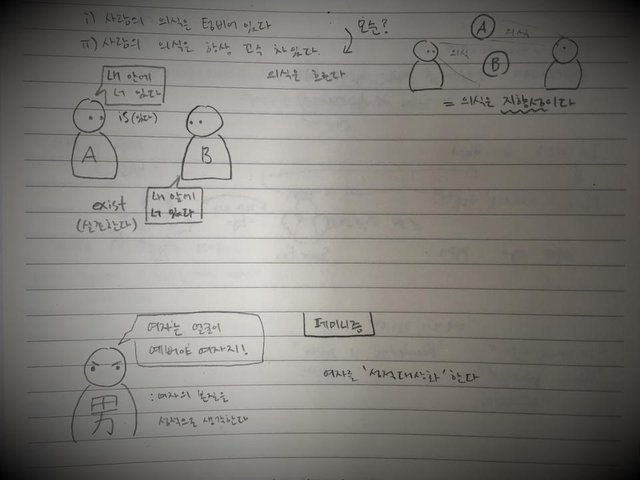 i) 사람의 의식은 텅비어 있다
모순?
ii) 사람의 의식은 항상 고속 차있다.
의식은 흐른다
A
의식
의식
B
= 의식은 지향성이다
내 안에
너 있다
is(있다)
A
B
exist
(실존한다)
내 앞에
너 있다
여자는 얼굴이
예뻐야 여자지!
男
: 여자의 본질을
성적으로 생각한다
페미니즘
여자를 '성적대상화' 한다